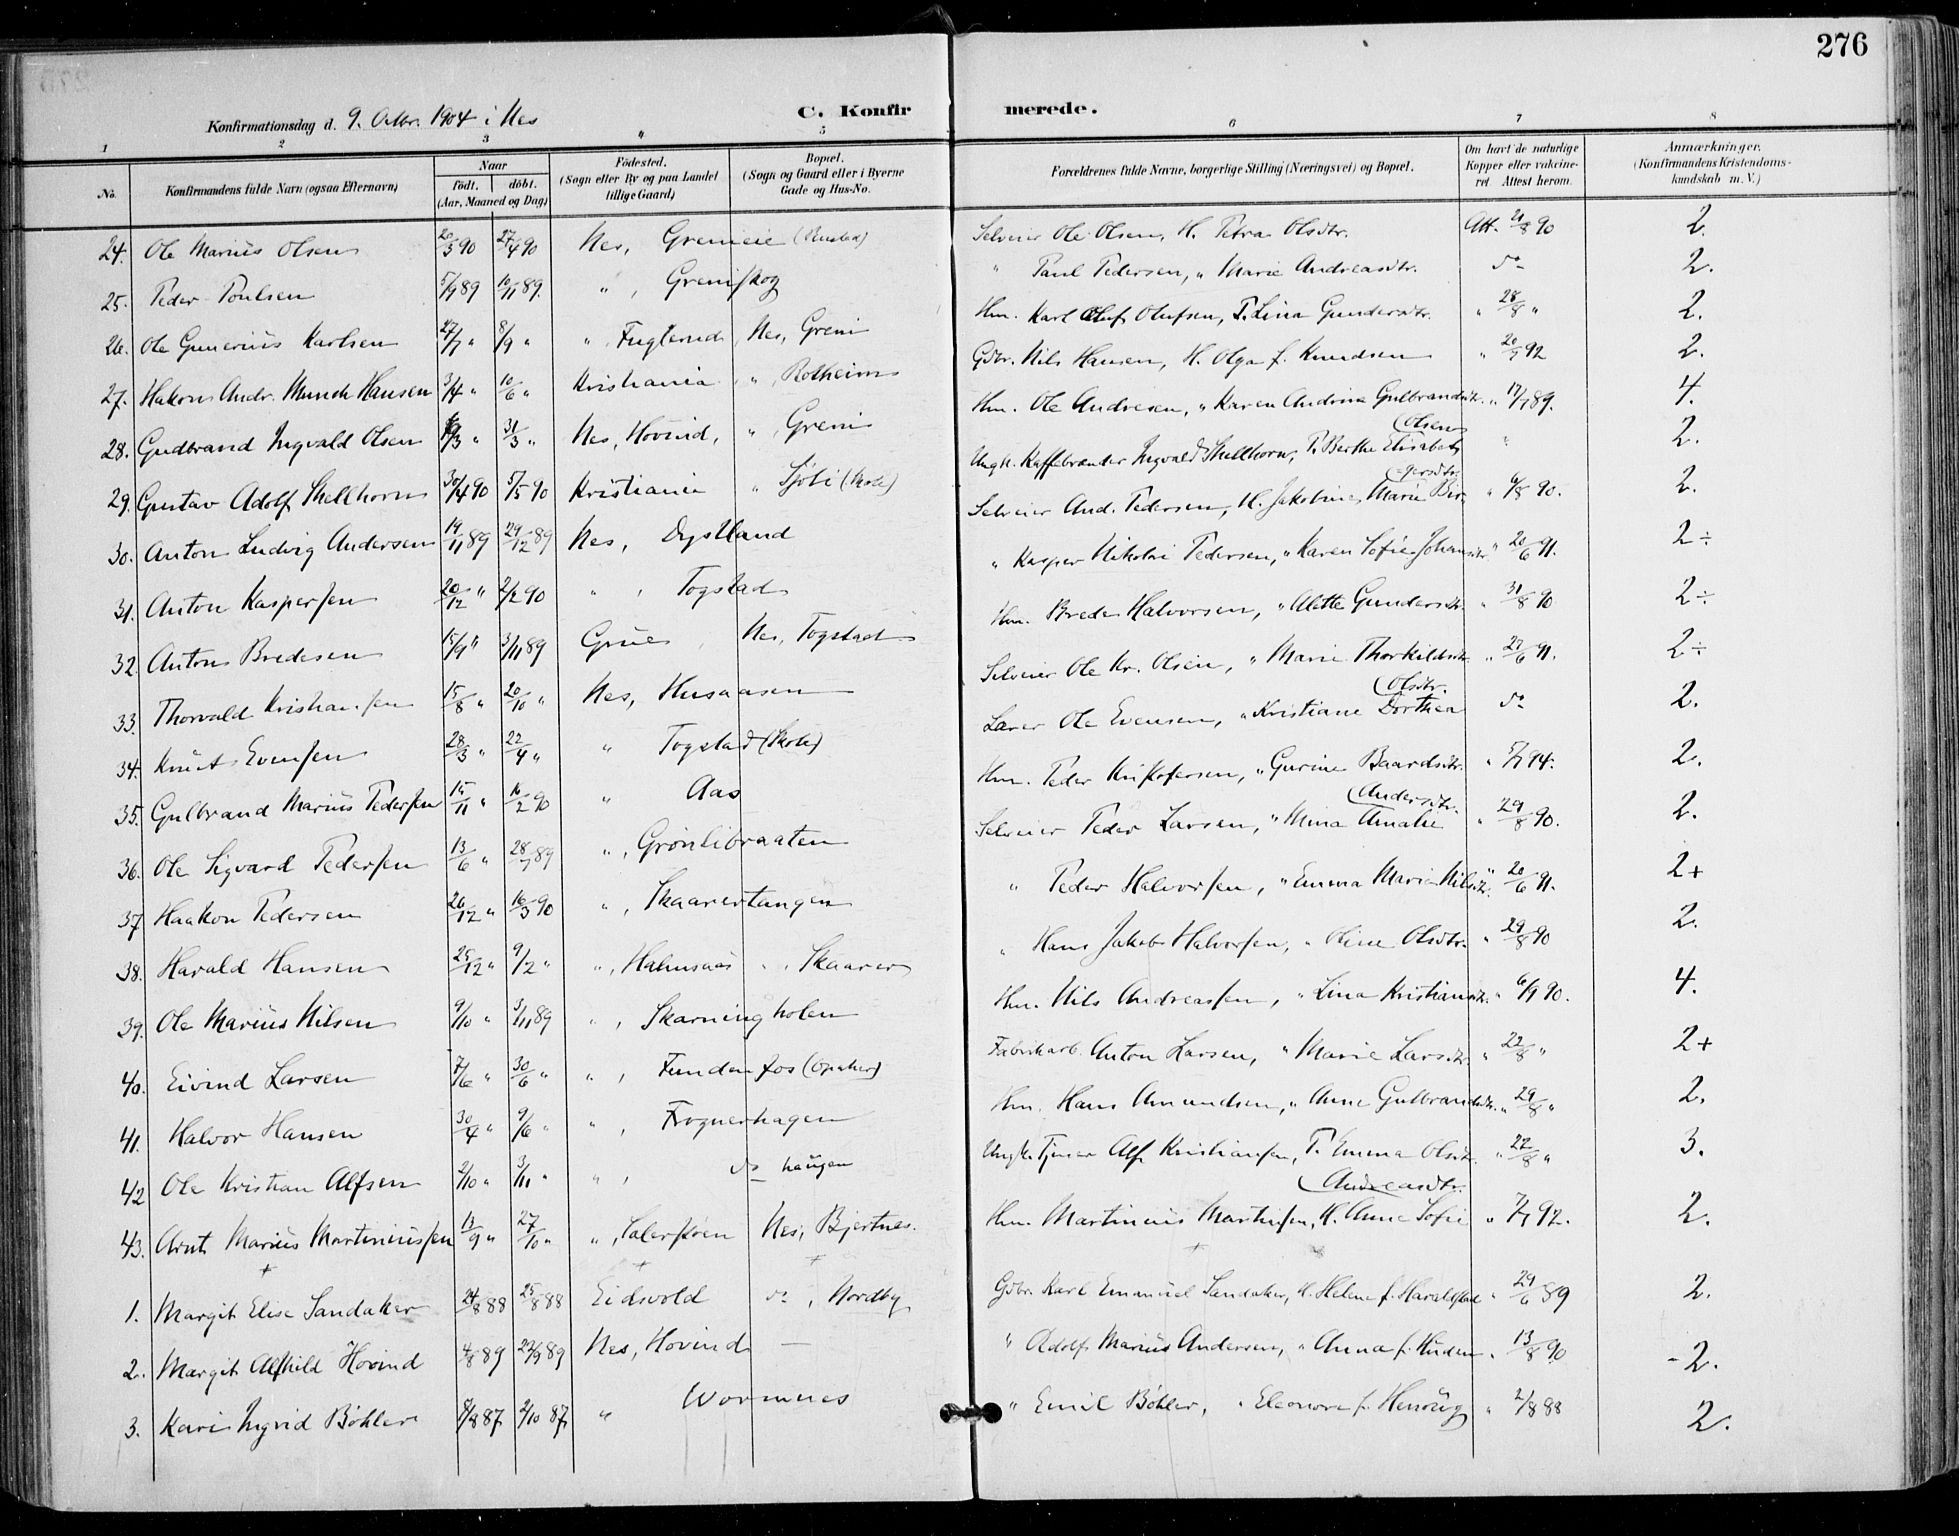 276
Konfirmationsdag d. 9. Oktbr. 1904 i Nes
C. Konfirmerede.
1 2 3 " 5 6 7 8
No. Konfirmandens fulde Navn (ogsaa Efternavn) Naar født. døbt. (Aar, Maaned og Dag) Fødested. (Sogn eller By og paa Landet tillige Gaard) Bopæl. (Sogn og Gaard eller i Byerne Gade og Hus-No. Forældrenes fulde Navne, borgerlige Stilling (Næringsvei) og Bopæl. Om havt de naturlige Kopper eller vakcineret. Attest herom. Anmærkninger. (Konfirmandens Kristendomskundskab m. V.)
24. Ole Marius Olsen 20/3 90 27/4 90 Nes, Grenieie Selveier Ole Olsen, H. Petra Olsdtr. Att. 21/8 90 2.
25. Peder Poulsen 5/9 89 10/11 89. " , Greniskog " Paul Pedersen, " Marie Andreasdtr. do 2.
26. Ole Gunerius Karlsen 27/7 " 8/9 " " , Fuglerud Nes, Greni Hm. Karl Oluf Olufsen, P. Lina Gundersdtr. " 28/8 " 2.
27. Hakon Andr. Munch Hansen 3/4 " 10/6 " Kristiania " , Rotheim Gdbr. Nils Hansen, H. Olga f. Knudsen " 20/9 92 2.
28. Gudbrand Ingvald Olsen /3 " 31/3 " Nes, Hovind, " , Greni Hm. Ole Andresen, " Karen Andrine Gulbrandsdtr. " 17/7 89. 4.
29. Gustav Adolf Skellhorn 30/4 90 5/5 90 Kristiania " Sjoli (Skole) Ungk. Kaffebrænder Ingvald Skellhorn, P. Berthe Elisabeth Olsen " 2.
30. Anton Ludvig Andersen 19/11 89 29/12 89 Nes, Dystland Selveier And. Pedersen, H. Jakobine Marie Birgersdtr. " 6/8 90. 2.
31. Anton Kaspersen 20/12 " 2/2 90 " , Togstad " Kasper Nikolai Pedersen, " Karen Sofie Johansdtr. " 20/6 91. 2÷
32. Anton Bredesen 15/9 " 3/11 89 Grue , Nes, Togstad Hm. Brede Halvorsen, " Alette Gundersdtr. " 31/8 90 2÷
33. Thorvald Kristiansen 15/8 " 20/10 " Nes, Husaasen Selveier Ole Kr. Olsen, " Marie Thorkildsdtr. " 27/6 91. 2÷
34. Knut Evensen 28/3 " 22/4 " " Togstad (Skole) Lærer Ole Evensen, " Kristiane Dorthea Olsdtr. do 2.
35. Gulbrand Marius Pedersen 15/11 " 16/2 90 " Aas Hm. Peder Kristofersen, " Gurine Baardsdtr. " 5/7 94. 2.
36. Ole Sigvard Pedersen 13/6 " 28/7 89 " , Grønlibraaten Selveier Peder Larsen, " Mina Amalie Andersdtr. " 29/8 90. 2.
37. Haakon Pedersen 26/12 " 16/3 90 " , Skaarertangen " Peder Halvorsen, " Emma Marie Nilsdtr. " 20/6 91. 2+
38. Harald Hansen 25/12 " 9/2 " " , Halmsaas " , Skaarer " Hans Jakob Halvorsen, " Oline Olsdtr. " 29/8 90 2.
39. Ole Marius Nilsen 9/10 " 3/11 89 " , Skarningholen Hm. Nils Andreassen, " Lina Kristiansdtr. " 6/9 90. 4.
40. Eivind Larsen 7/6 " 30/6 " " , Funden fos (Opaker) Fabrikarb. Anton Larsen, " Marie Larsdtr. " 22/8 " 2+
41. Halvor Hansen 30/4 " 9/6 " " , Frognerhagen Hm. Hans Amundsen, " Anne Gulbrandsdtr. " 29/8 " 2.
42 Ole Kristian Alfsen 2/10 " 3/11 " " , do haugen Ungk. Tjener Alf Kristiansen, P. Emma Olsdtr. " 22/8 " 3.
43. Arnt Marius Martiniussen 13/9 " 27/10 " " , Nes, Bjertnes. Hm. Martinius Martinsen, H. Anne Sofie Andreasdtr. " 7/7 92. 2.
1. Margit Elise Sandaker 24/8 88 25/8 88 Eidsvold do , Nordby Gdbr. Karl Emanuel Sandaker, H. Helene f. Haraldstad " 29/6 89 2.
2. Margit Alfhild Hovind 4/8 89 22/9 89 Nes, Hovind — " Adolf Marius Andersen, " Anna f. Huden " 13/8 90 -2.
3. Kari Ingvid Bøhler 8/8 87 2/10 87 " Wormnes " Emil Bøhler, " Eleonora f. Henrug " 2/8 88 2.